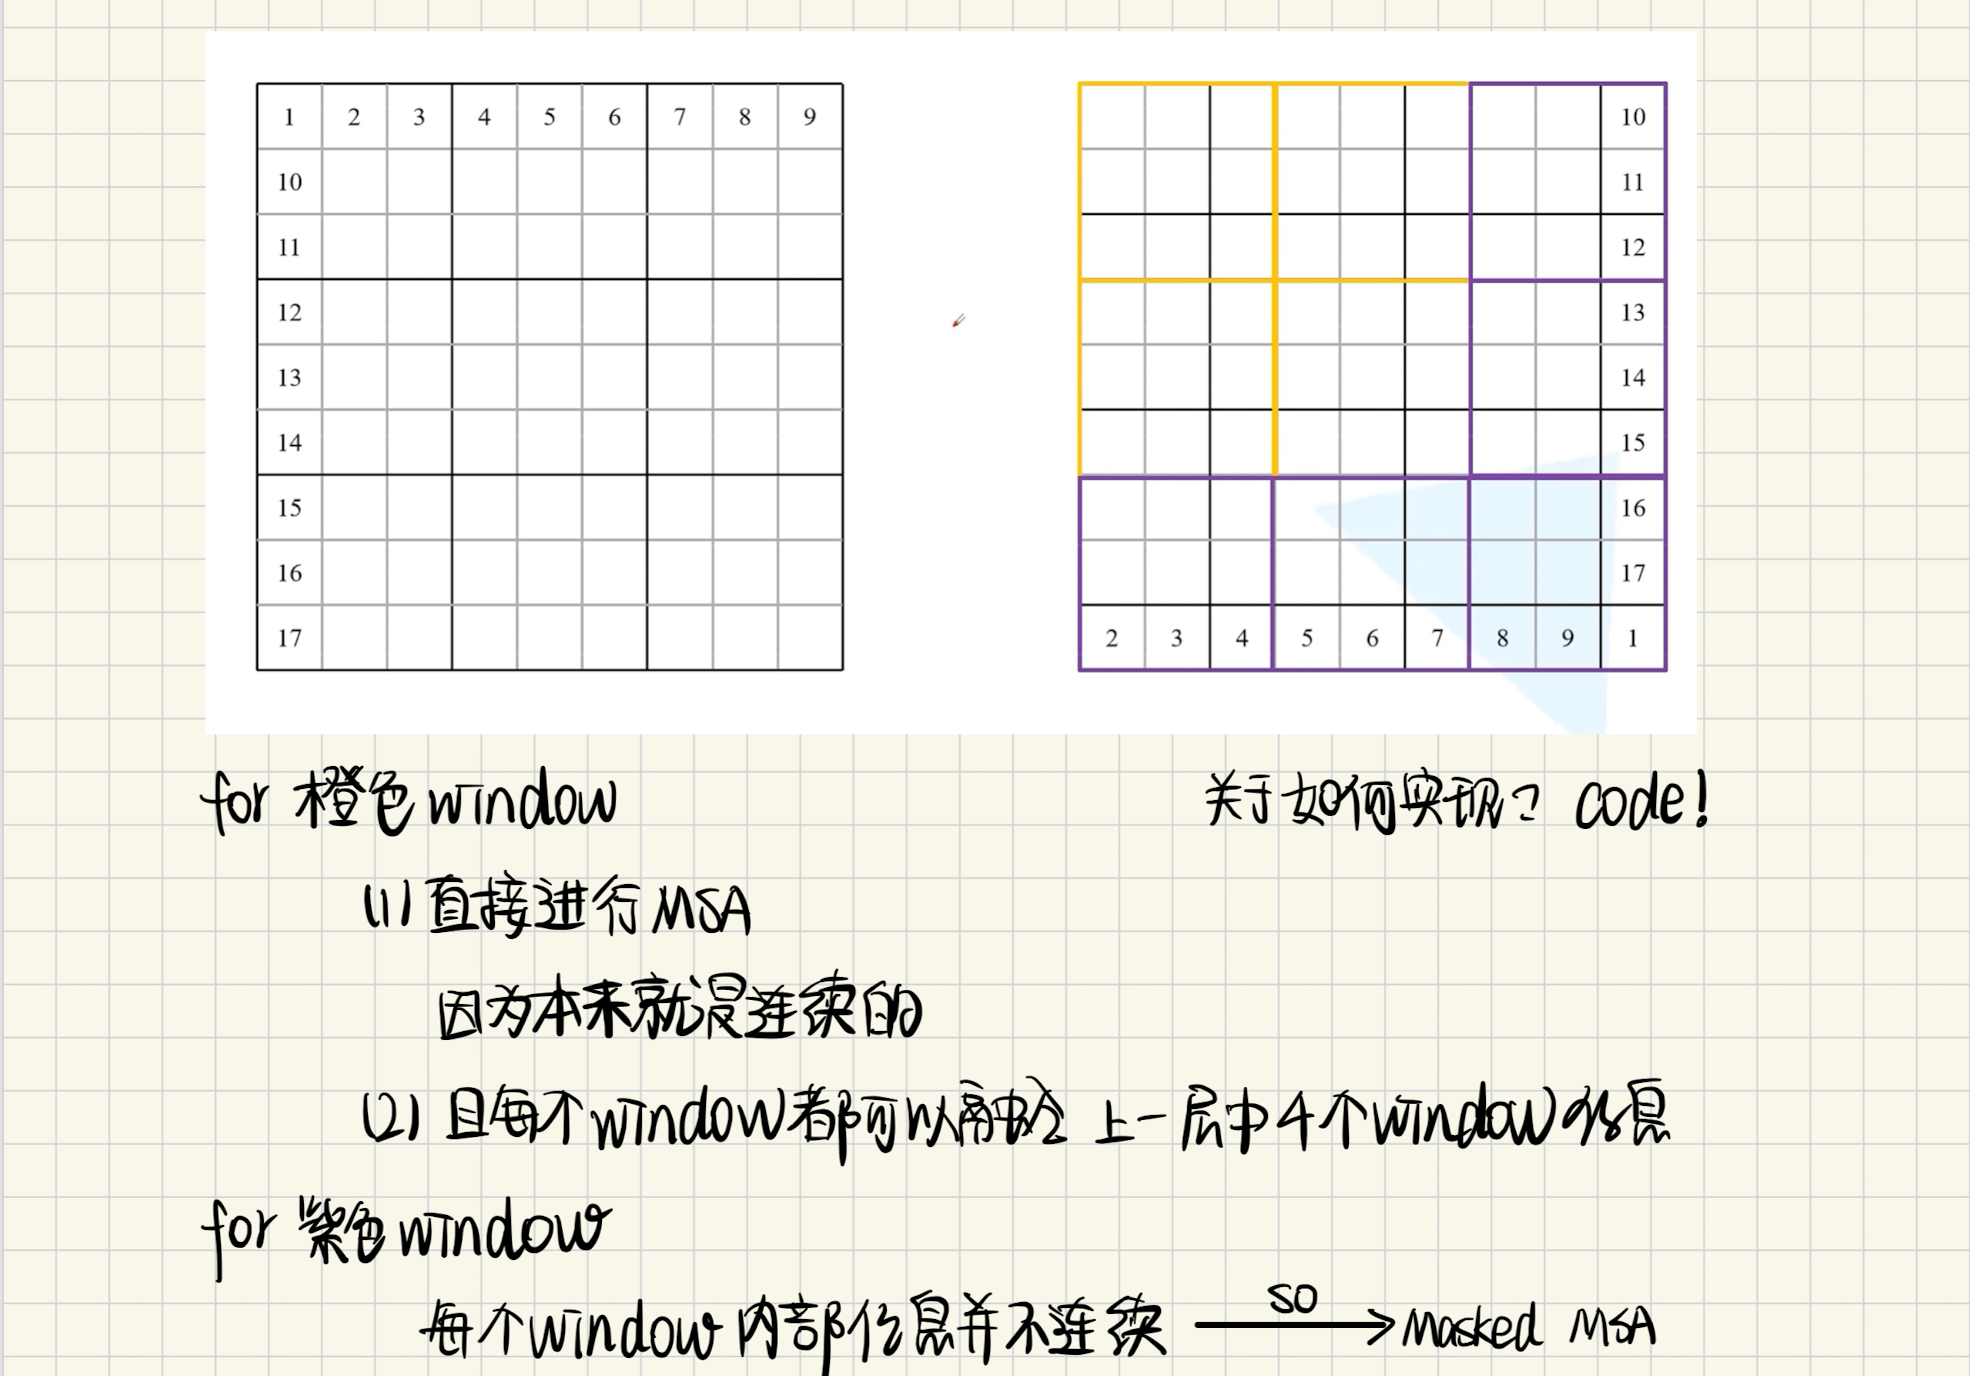 1 2 3 4 5 6 7 8 9
10
11
12
13
14
15
16
17
10
11
12
13
14
15
16
17
2 3 4 5 6 7 8 9 1
for 橙色 window
关于如何实现? code!
(1) 直接进行 MSA
因为本来就是连续的
(2) 且每个 window 都可以融合 上一层中 4 个 window 信息
for 紫色 window
每个 window 内部信息并不连续 so → masked MSA